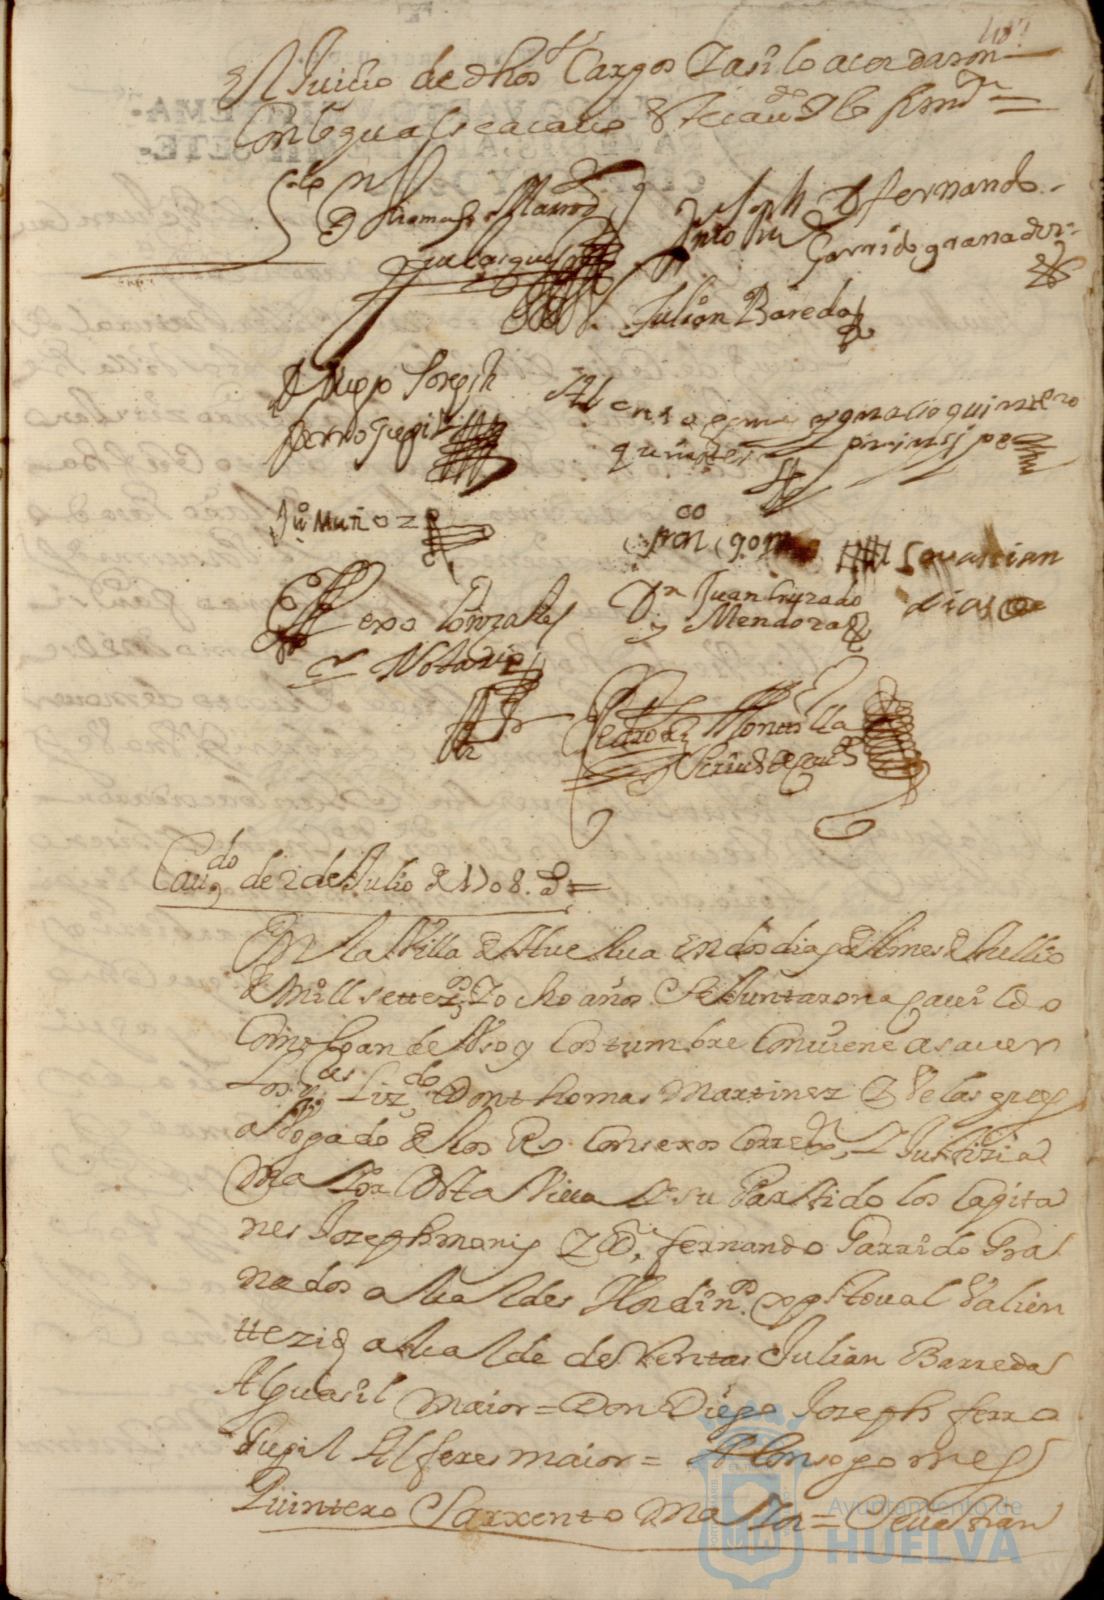 el Juicio de dhos Cargos Y asi lo acordaron
Con lo qual se acavo este cavdo
Lizdo Dn Thomas Martinz
Velasques
Joseph
Dn fernando
Garrido granados
Julian Bareda
Dn Diego Joseph
ferro Gregil
Alonso gomez
quintero
ygnacio quintero
prinsipe
Ju Muñoz
franco gomez
Sevastian
dias
Pero Gonzales
Notario
Dn Juan Cruzado
y Mendoza
Pedro de Montilla
Cavdo de 2 de Julio de 1708. as =
En la Villa de Huelva en dos dias del mes de Jullio
de mill settezos Y ocho años Se Juntaron a Cavildo
Como lo han de Uso y Costumbre Conviene a saver
Los Sres Lizdo Don thomas Martinez de Velasques
abogado de los Rs Consexos Corregor Y Justizia
maYor de esta Villa Y su Partido los Capita
nes Jozeph monis Y Dn fernando Garrido Gra
nados alcaldes Hordinos Xpstoval Valien
tte alcalde de Rentas Julian Barreda
Alguasil maior = Don Diego Jozeph ferro
Gregil Alferes maior = Alonso gomes
Quintero Sarxento maYor = Sevastian
Ayuntamiento de
HUELVA